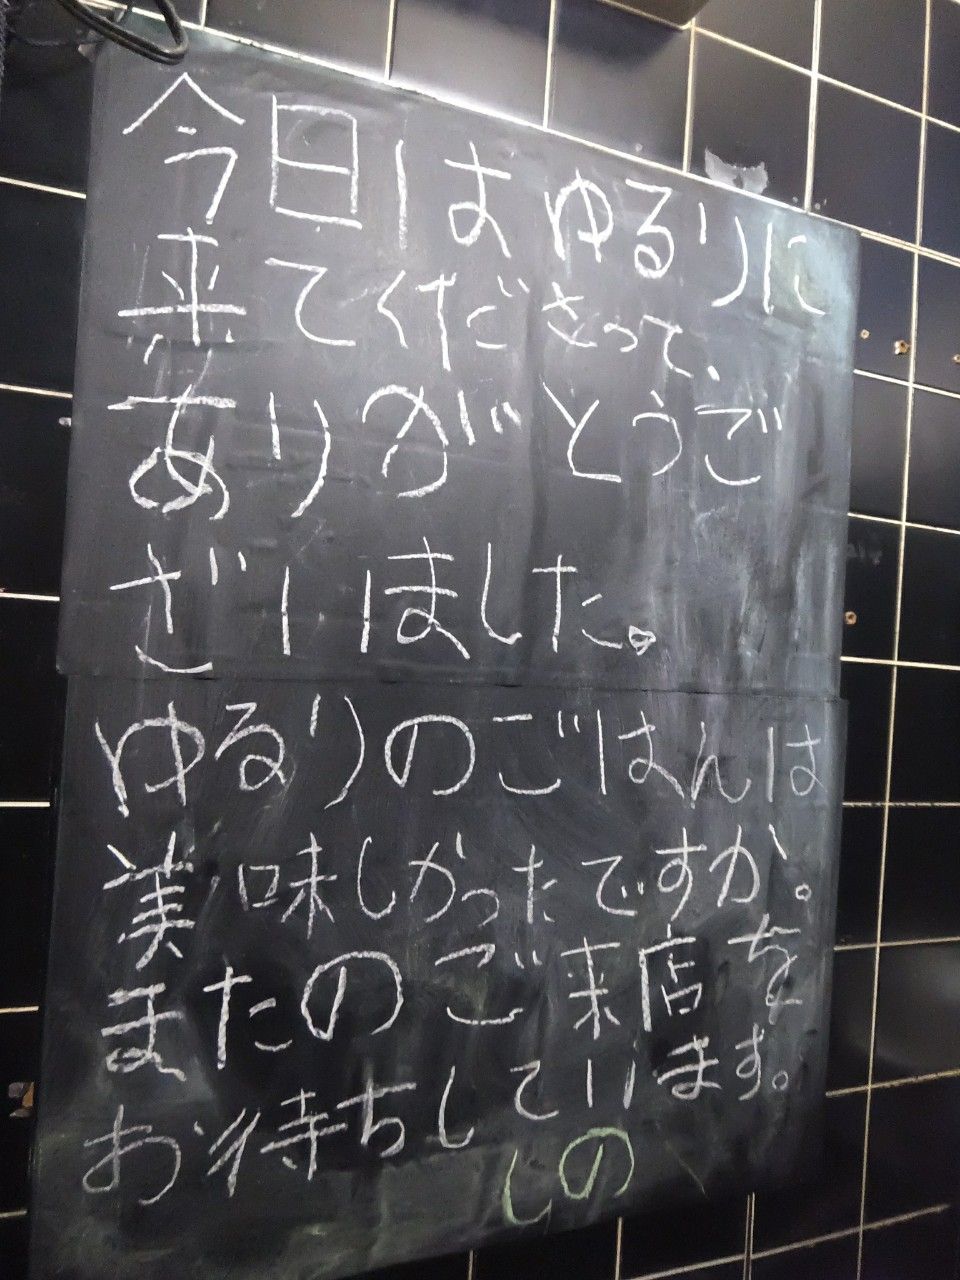 今日はゆるりに
来てくださって、
ありがとうご
ざいました。
ゆるりのごはんは
美味しかったですか。
またのご来店を
お待ちしています。
しの